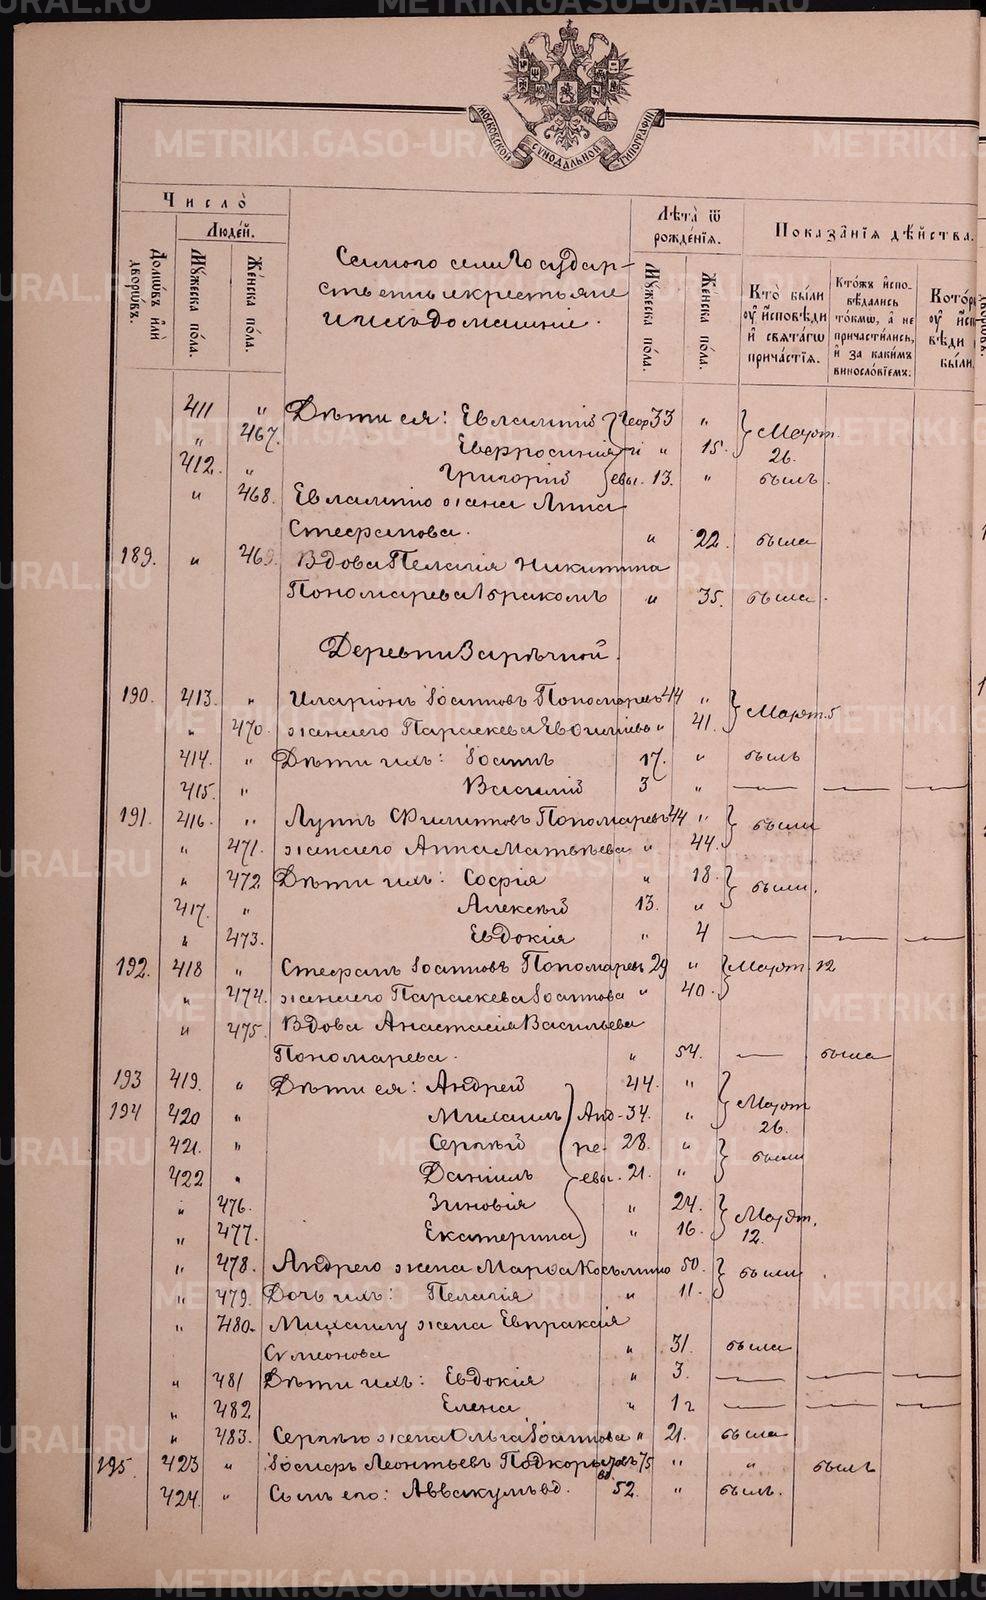 METRIKI.GASO-URAL.RU
МОСКОВСКОЙ СѴНОДАЛЬНОЙ ТИПОГРАФІИ
Число̀
Люде́й.
Домѡ́въ и҆лѝ дворѡ́въ.
Мꙋ́жеска по́ла.
Же́нска по́ла.
Самого села Государ-
ственные крестьяне
и ихъ домашніе.
Лѣ́та ѿ рожде́нїѧ.
Мꙋ́жеска по́ла.
Же́нска по́ла.
Показа̑нїѧ дѣ́йства.
Кто̀ бы́ли оу҆ и҆сповѣ́ди и҆ свѧта́гѡ прича́стїѧ.
Кто́жъ и҆спо-вѣ́дались то́кмѡ, а҆ не причасти́лись, и҆ за каки́мъ винослѡ́вїемъ.
411 " Дѣти ея: Евлампій Геор 33 " Март.
" 467. Евфросинія гі " 15. 26.
412. " Григорій евы. 13. " былъ
" 468. Евлампію жена Анна
Стефанова. " 22. была
189. " 469. Вдова Пелагія Никитина
Пономарева 1 бракомъ " 35. была.
Деревни Зарѣчной.
190. 413. " Иларіонъ Іоанновъ Пономаревъ 44 " Март. 5
" 470. жена его Параскева Евѳиміева " 41.
414. " Дѣти ихъ: Іоаннъ 17. " былъ
415. " Василій 3 " — — —
191. 416. " Луппъ Филипповъ Пономаревъ 44 " были
" 471. жена его Анна Матвѣева " 44.
" 472 Дѣти ихъ: Софія " 18. были.
417. " Алексѣй 13. "
" 473. Евдокія " 4 — — —
192. 418 " Стефанъ Іоанновъ Пономаревъ 29 " Март. 12
" 474. жена его Параскева Іоаннова " 40.
" 475. Вдова Анастасія Васильева
Пономарева. " 54. — была
193 419. " Дѣти ея: Андрей 44. " Март
194 420 " Михаилъ Анд- 34. " 26.
421. " Сергѣй ре- 28. " были
422 " Даніилъ евы. 21. "
" 476. Зиновія " 24. Март.
" 477. Екатерина " 16. 12.
" 478. Андрею жена Марѳа Козьмина 50. были
" 479. Дочь ихъ: Пелагія " 11.
" 480. Михаилу жена Евпраксія
Симеонова " 31. была
" 481 Дѣти ихъ: Евдокія " 3. — — —
" 482 Елена " 1 г — — —
" 483. Сергѣю жена Ольга Іоаннова " 21. была
195. 423 " Іосифъ Леонтьевъ Подкорытовъ 75 " " былъ
424. " Сынъ его: Аввакумъ вд. 52. " былъ.